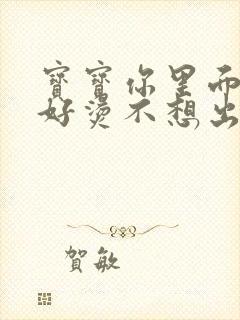 寶寶你里面
好燙不想出
賀敏